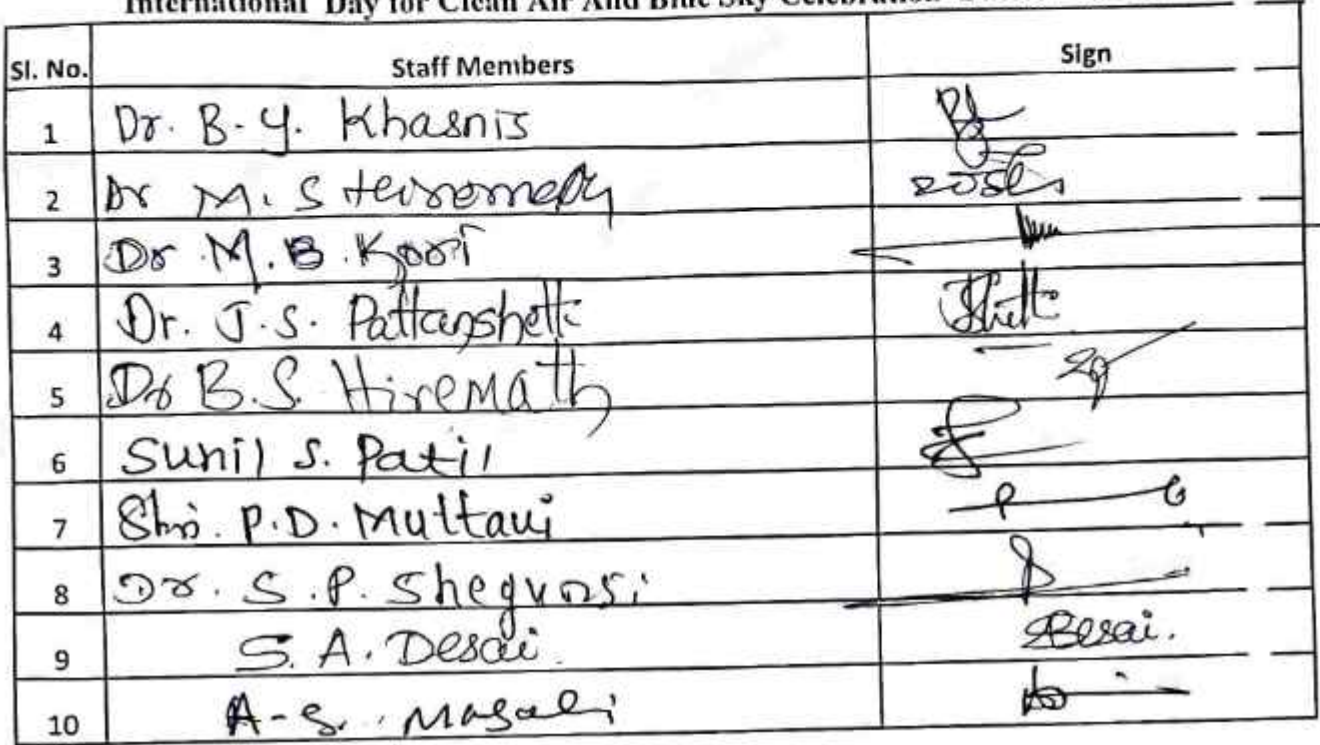 International Day for Clean Air And Blue Sky Celebration
Sl. No. Staff Members Sign
1 Dr. B. Y. Khasnis
2 Dr M. S Hiremath
3 Dr. M. B. Kori
4 Dr. J. S. Pattanshetti Shetti
5 Dr B. S. Hiremath
6 Sunil S. Patil
7 Shri. P. D. Muttavi
8 Dr. S. P. Shegunsi
9 S. A. Desai. SDesai.
10 A-S. Masali